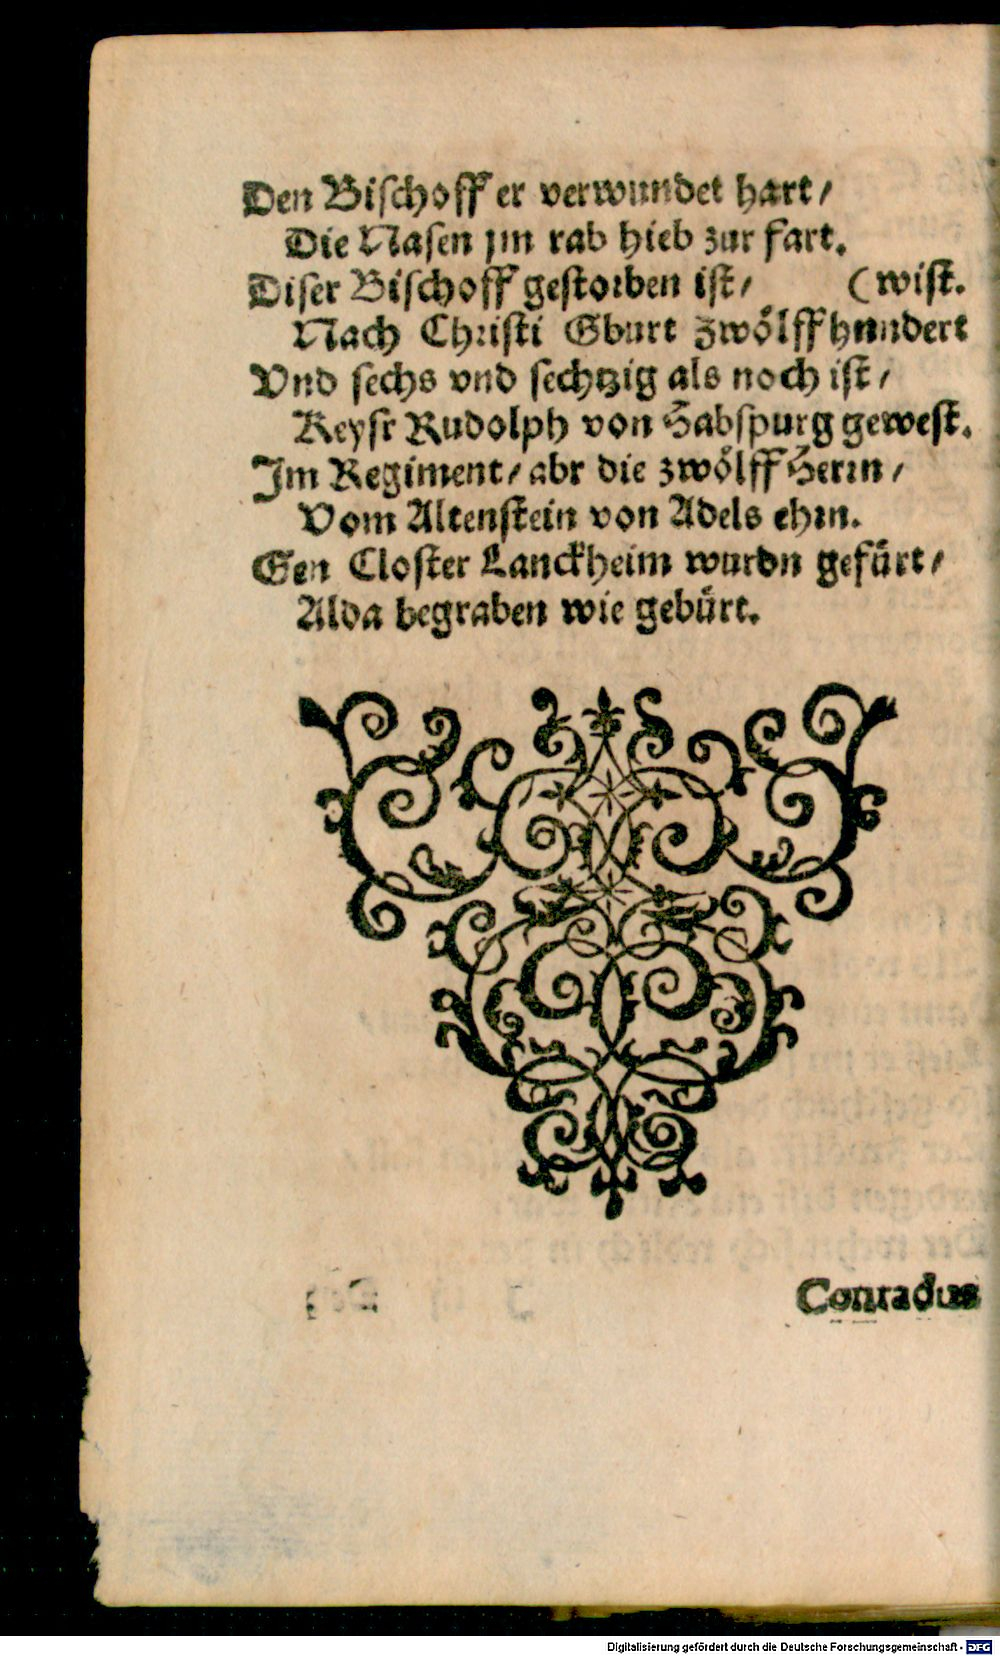 Den Bischoff er verwundet hart /
Die Nasen jm rab hieb zur fart.
Diser Bischoff gestorben ist / (wist.
Nach Christi Gburt zwölff hundert
Vnd sechs vnd sechtzig als noch ist /
Keysr Rudolph von Habspurg gewest.
Im Regiment / abr die zwölff Herrn /
Vom Altenstein von Adels ehrn.
Gen Closter Lanckheim wurdn gefürt /
Alda begraben wie gebürt.
Conradus
Digitalisierung gefördert durch die Deutsche Forschungsgemeinschaft - DFG